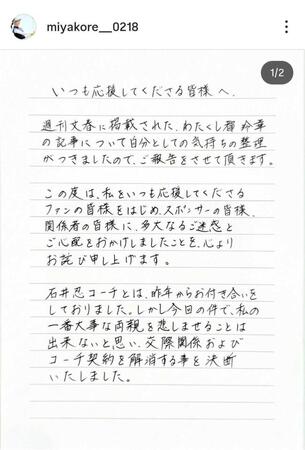 miyakore__0218
1/2
いつも応援してくださる皆様へ、
週刊文春に掲載された、わたくし都玲華
の記事について自分としての気持ちの整理
がつきましたので、ご報告をさせて頂きます。
この度は、私をいつも応援してくださる
ファンの皆様をはじめ、スポンサーの皆様、
関係者の皆様に、多大なるご迷惑と
ご心配をおかけしましたことを、心より
お詫び申し上げます。
石井忍コーチとは、昨年からお付き合いを
しておりました。しかし今回の件で、私の
一番大事な両親を悲しませることは
出来ないと思い、交際関係および
コーチ契約を解消する事を決断
いたしました。